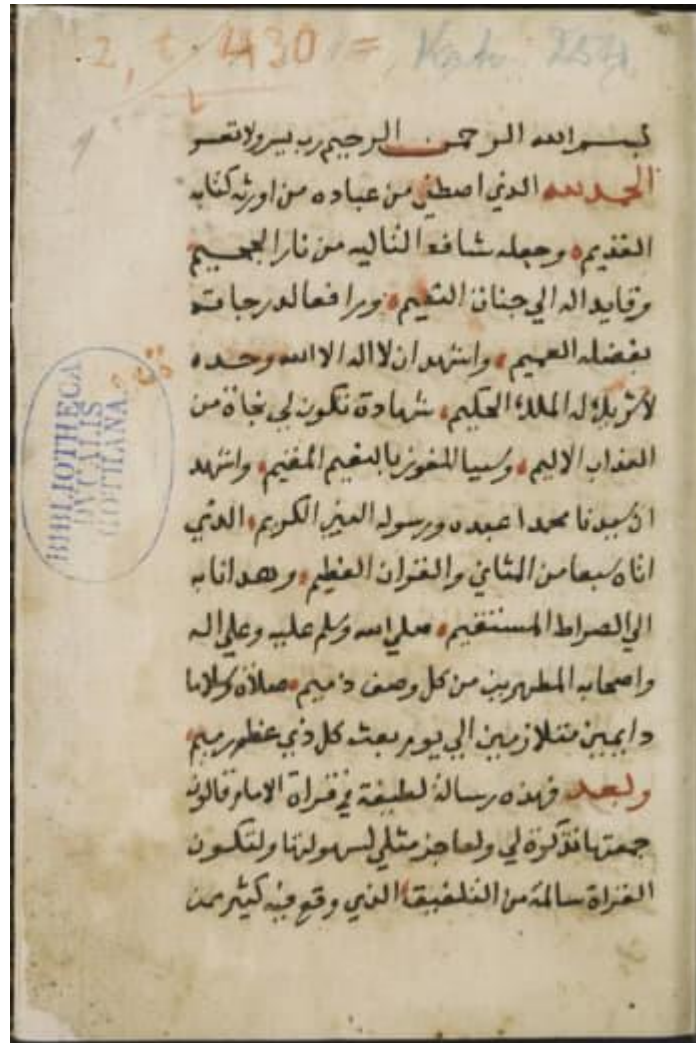 2, t 430 =
بسم الله الرحمن الرحيم رب يسر ولا تعسر
الحمد لله الذي اصطفي من عباده من اورثه كتابه
القديم وجعله شافعا لتاليه من نار الجحيم
وقايدا له الي جنان النعيم ورافعا لدرجاته
بفضله العميم واشهد ان لا اله الا الله وحده
لا شريك له الملك الحكيم شهادة تكون لي نجاة من
العذاب الاليم وسببا للفوز بالنعيم المقيم واشهد
ان سيدنا محمدا عبده ورسوله العزيز الكريم الذي
اتاه سبعا من المثاني والقران العظيم وهدانا به
الي الصراط المستقيم صلي الله وسلم عليه وعلي اله
واصحابه المطهرين من كل وصف ذميم صلاة وسلاما
دايمين متلازمين الي يوم بعث كل ذي عظم رميم
وبعد فهذه رسالة لطيفة في قراة الامام قالون
جمعتها تذكرة لي ولعاجز مثلي لسهولتها ولتكون
القراة سالمة من التلفيق الذي وقع فيه كثير ممن
BIBLIOTHECA
DVCALIS
GOTHANA.